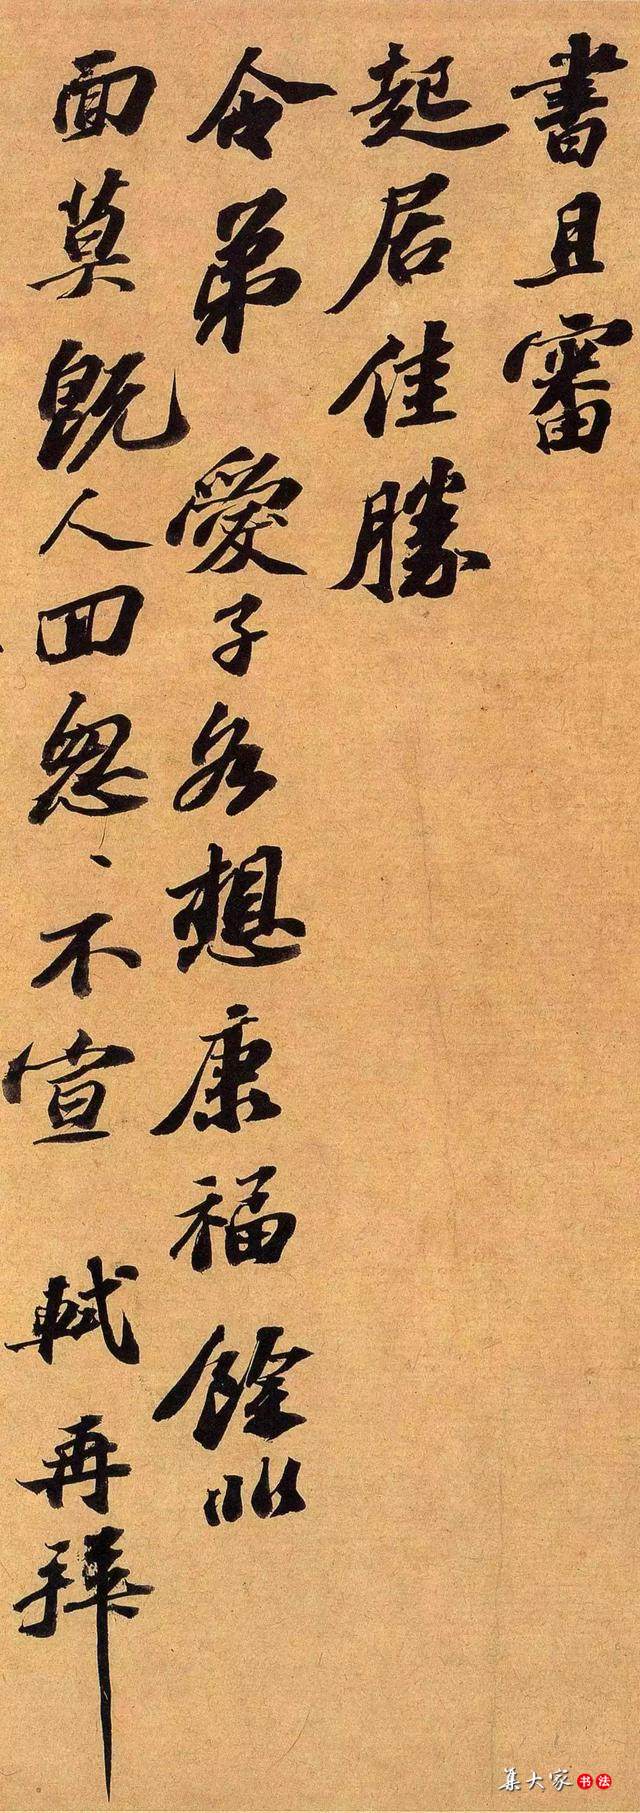 書且審
起居佳勝
令弟 愛子各想康福餘非
面莫既人回怱〻不宣 軾再拜
集大家书法